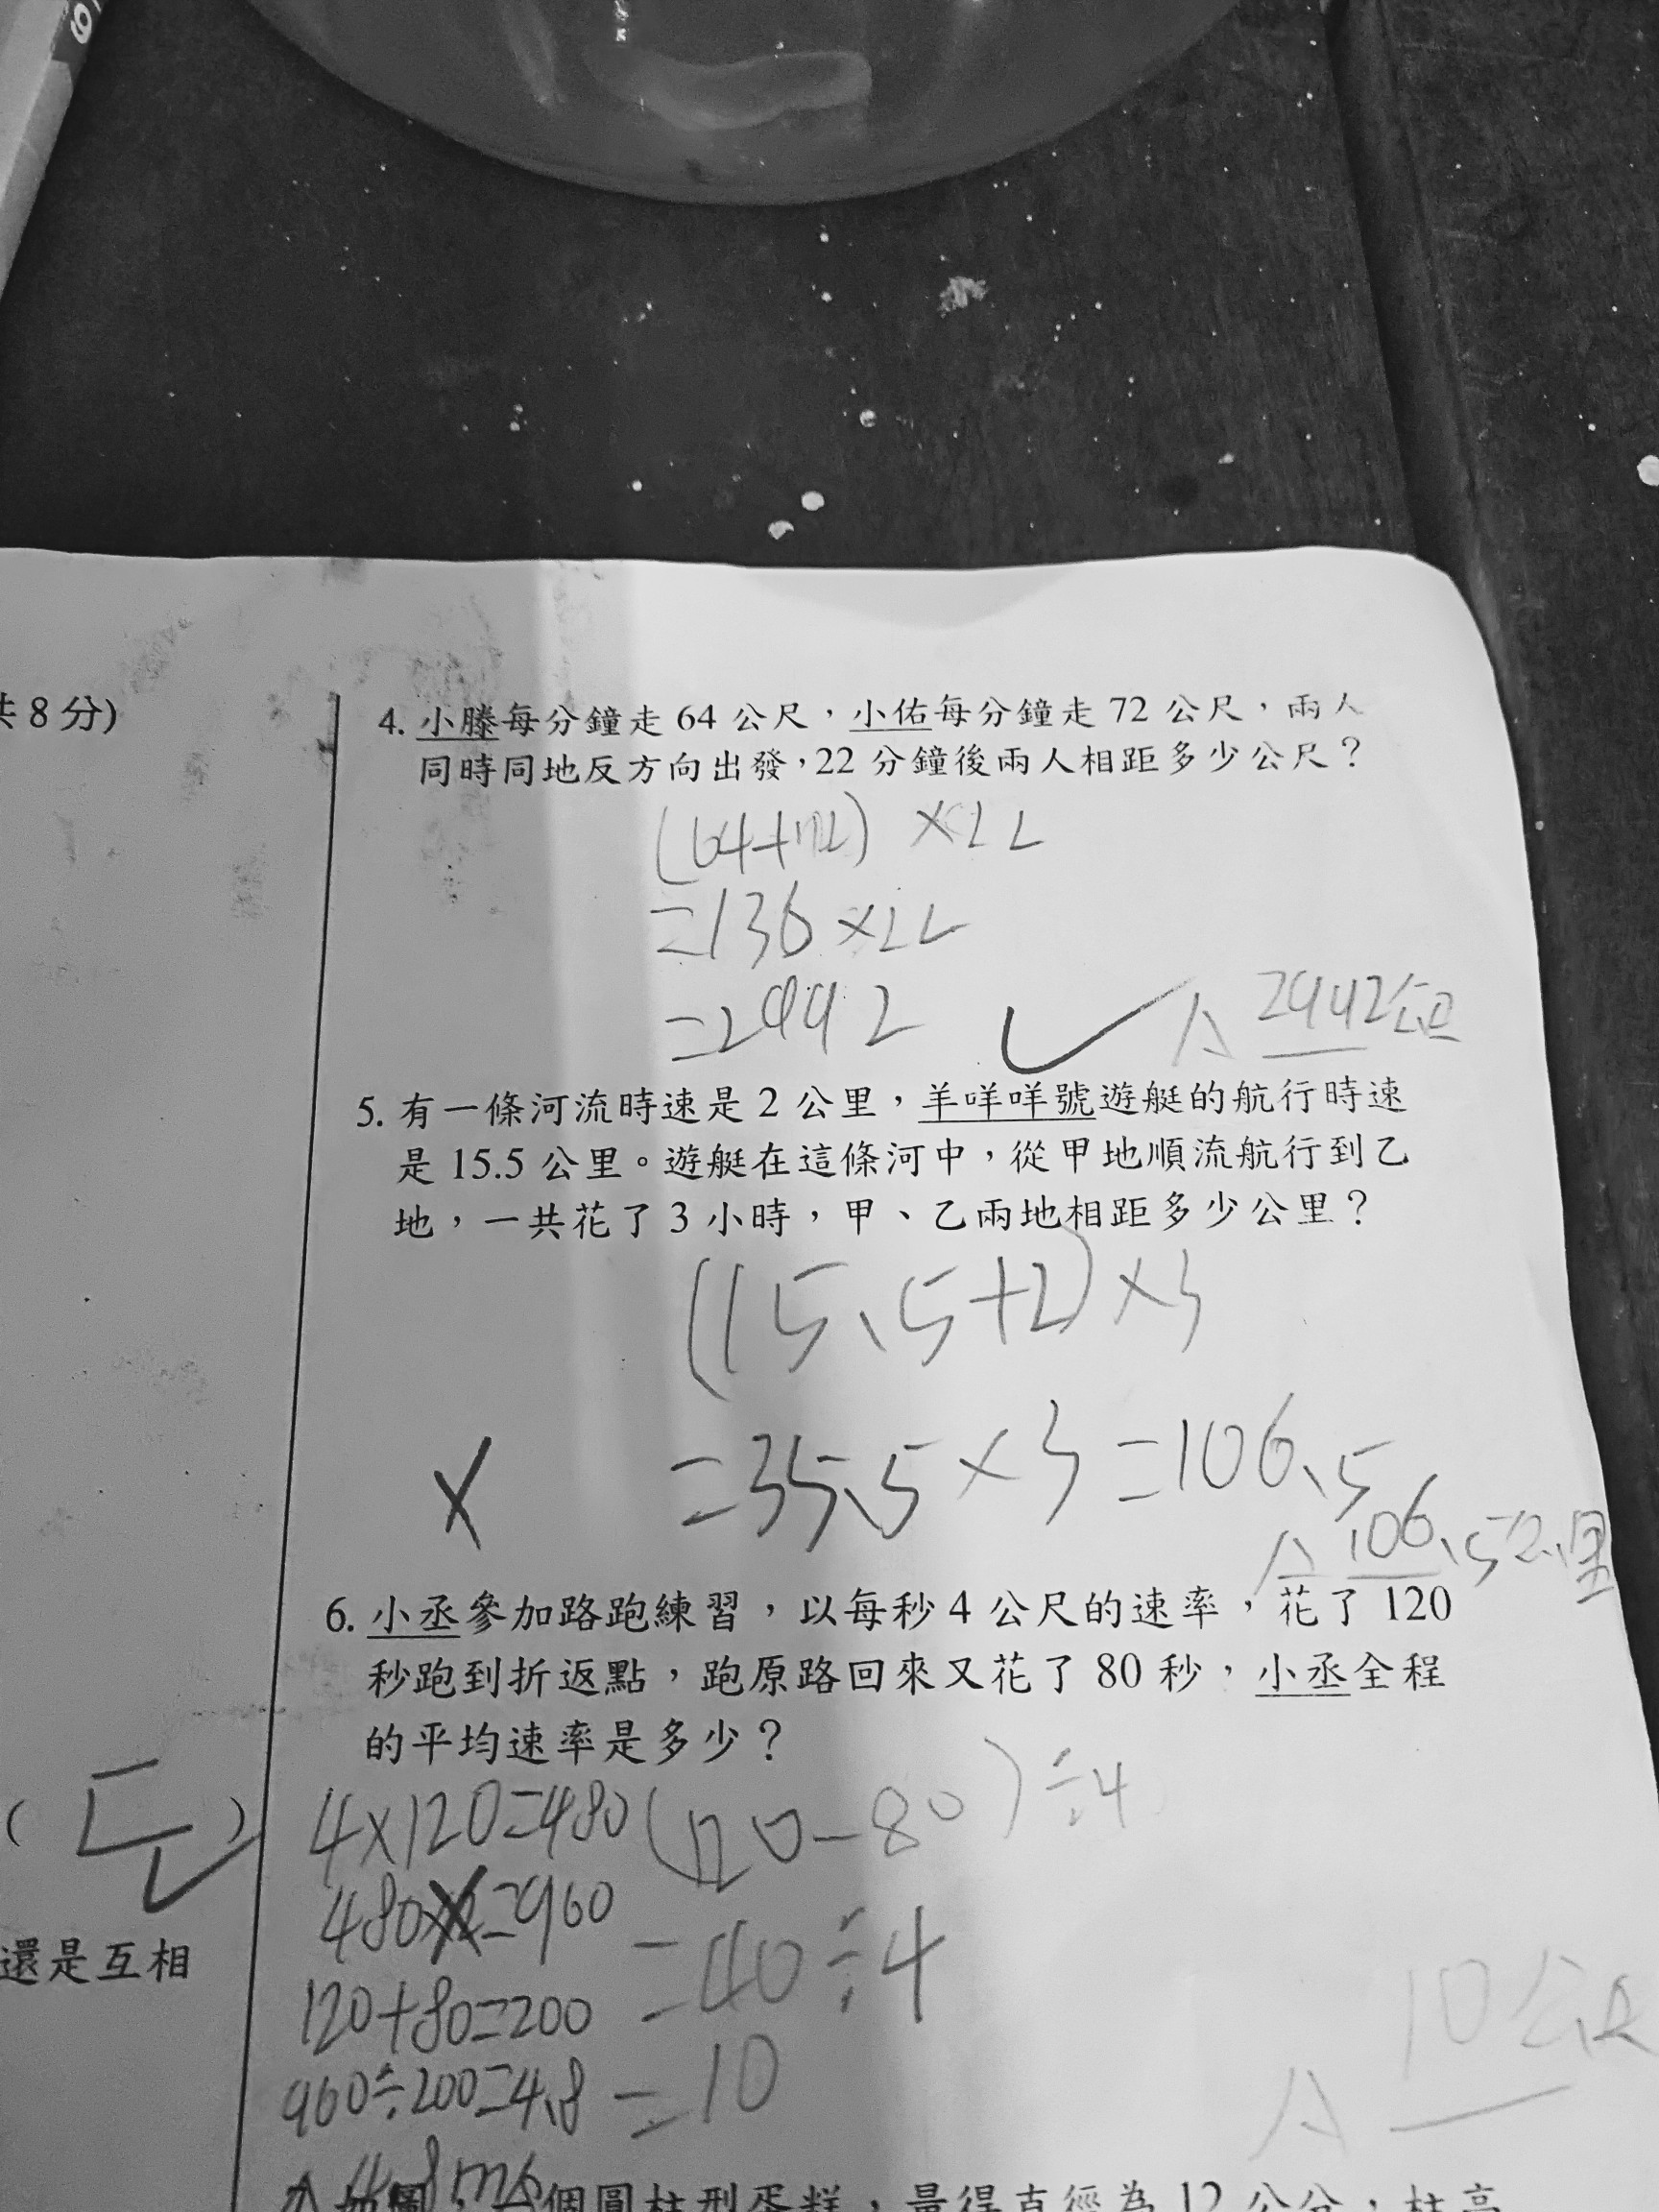 共8分)
4. 小滕每分鐘走 64 公尺，小佑每分鐘走 72 公尺，兩人
同時同地反方向出發，22 分鐘後兩人相距多少公尺？
(64+72) ×22
=136×22
=2992
A 2992公尺
5. 有一條河流時速是 2 公里，羊咩咩號遊艇的航行時速
是 15.5 公里。遊艇在這條河中，從甲地順流航行到乙
地，一共花了 3 小時，甲、乙兩地相距多少公里？
(15.5+2)×3
=35.5×3=106.5
A 106.5公里
6. 小丞參加路跑練習，以每秒 4 公尺的速率，花了 120
秒跑到折返點，跑原路回來又花了 80 秒，小丞全程
的平均速率是多少？
4×120=480
480×2=960
120+80=200
960÷200=4.8
(120-80)÷4
=40÷4
=10
A 10公尺
( )
還是互相
個圓柱型蛋糕，量得直徑為 12 公分，柱高